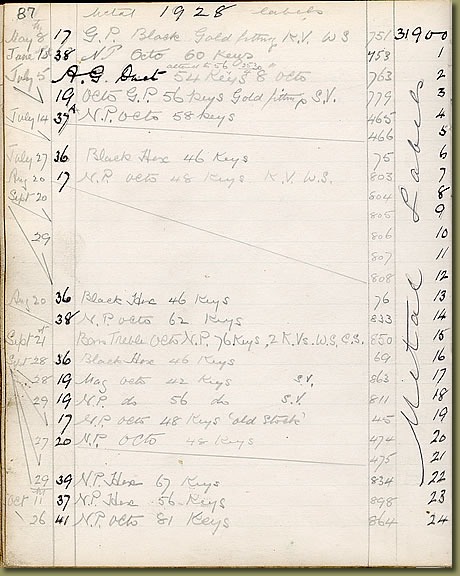 87 Metal 1928 labels
May 8th 17 G.P. Black Gold fitting K.V. W S 751 31900
June 1st 38 N.P. Octo 60 Keys 753 1
July 5 A.G. Duet 54 Keys 8 Octo 763 2
19 Octo G.P. 56 Keys Gold fittings S.V. 779 3
July 14 37A N.P. Octo 58 Keys 465 4
466 5
July 27 36 Black Hex 46 Keys 75 6
Aug 20 17 N.P. Octo 48 Keys K.V. W.S. 803 7
Sept 20 804 8
805 9
29 806 10
807 11
808 12
Aug 20 36 Black Hex 46 Keys 76 13
38 N.P. Octo 62 Keys 833 14
Sept 21st Bari Treble Octo N.P. 76 Keys, 2 K.Vs. W.S, C.S. 850 15
Sept 28 36 Black Hex 46 Keys 69 16
28 19 Mag Octo 42 Keys S.V. 863 17
29 19 N.P. do 56 do S.V. 811 18
17 N.P. Octo 48 Keys 'old Stock' 45 19
27 20 N.P. Octo 48 Keys 474 20
475 21
29 39 N.P. Hex 67 Keys 834 22
Oct 11th 37 N.P. Hex 56 Keys 898 23
26 41 N.P. Octo 81 Keys 864 24
Metal Labels